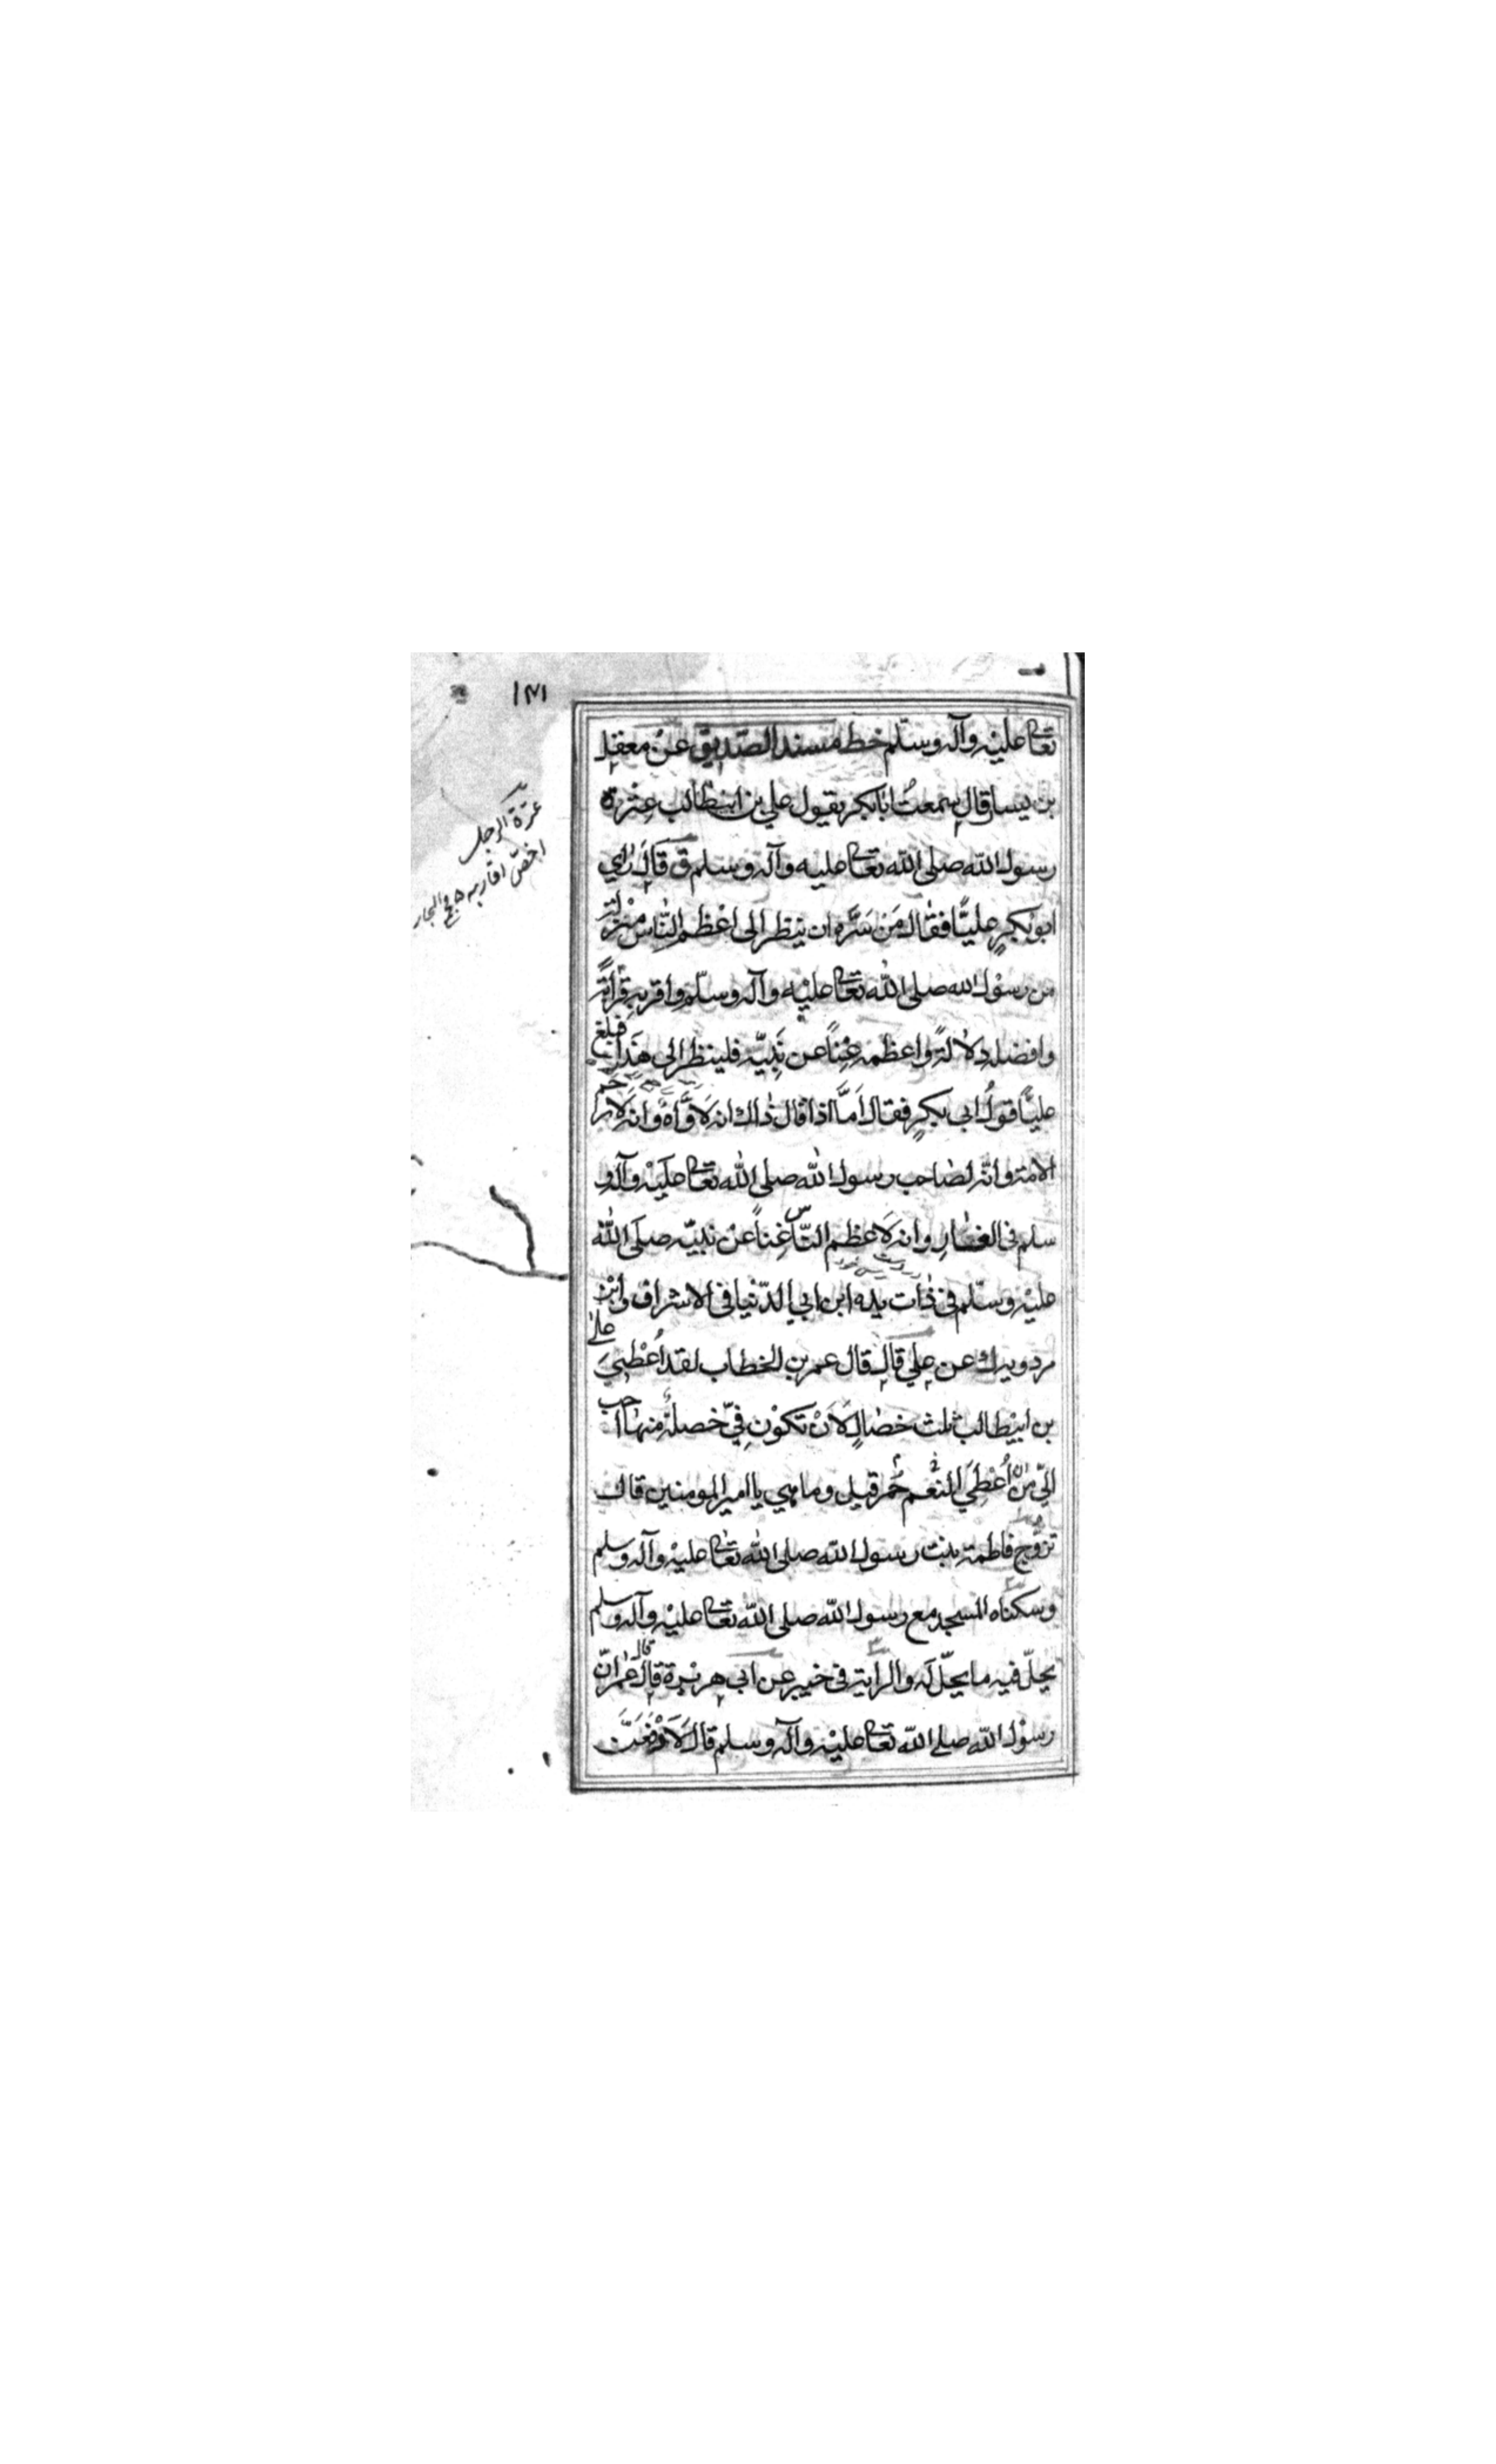 ١٣١
تعالى عليه وآله وسلم خط مسند الصديق عن معقل
بن يسا قال سمعت ابابكر يقول علي بن ابيطالب عترة
رسول الله صلى الله تعالى عليه وآله وسلم ق قال رأي
ابو بكرٍ عليًّا فقال من سَرَّه ان ينظر الى اعْظم النّاس منزلة
من رسول الله صلى الله تعالى عليه وآله وسلّم واقربه قرابةً
وافضله دلالةً واعظمه غِناً عن نَبِيّه فلينظر الى هَذا فبلغ
عليًّا قولُ ابي بكرٍ فقال اَمَّا اذا قال ذاك انه لَاَوَّاهٌ وانه لَارحم
الامة وانه لصاحب رسول الله صلى الله تعالى عليْه وآله و
سلم في الغار وانه لَاعظم النّاس غِناً عنْ نبيّه صلى الله
عليْه وسلّم في ذات يده ابن ابي الدّنيا في الاشراف وابْن
مردويه عن علي قال قال عمر بن الخطاب لقد اُعْطِيَ علىّ
بن ابيْطالب ثلث خصالٍ لَاَنْ تكوْن فِيّ خصلةٌ منها احب
اليّ من ان اُعْطِيَ النعم حُمر قيل وما هي يا امير المومنين قال
تزوّج فاطمة بنت رسول الله صلى الله تعالى عليْه وآله وسلم
وسكناه المسجد مع رسول الله صلى الله تعالى عليْه وآله وسلم
يحلّ فيه ما يحلّ له والراية في خيبر عن ابي هريْرة قال قال عمر انّ
رسوْل الله صلى الله تعالى عليْه وآله وسلم قال لَاَدْفَعَنَّ
عترة الرجل
اخصّ اقاربه